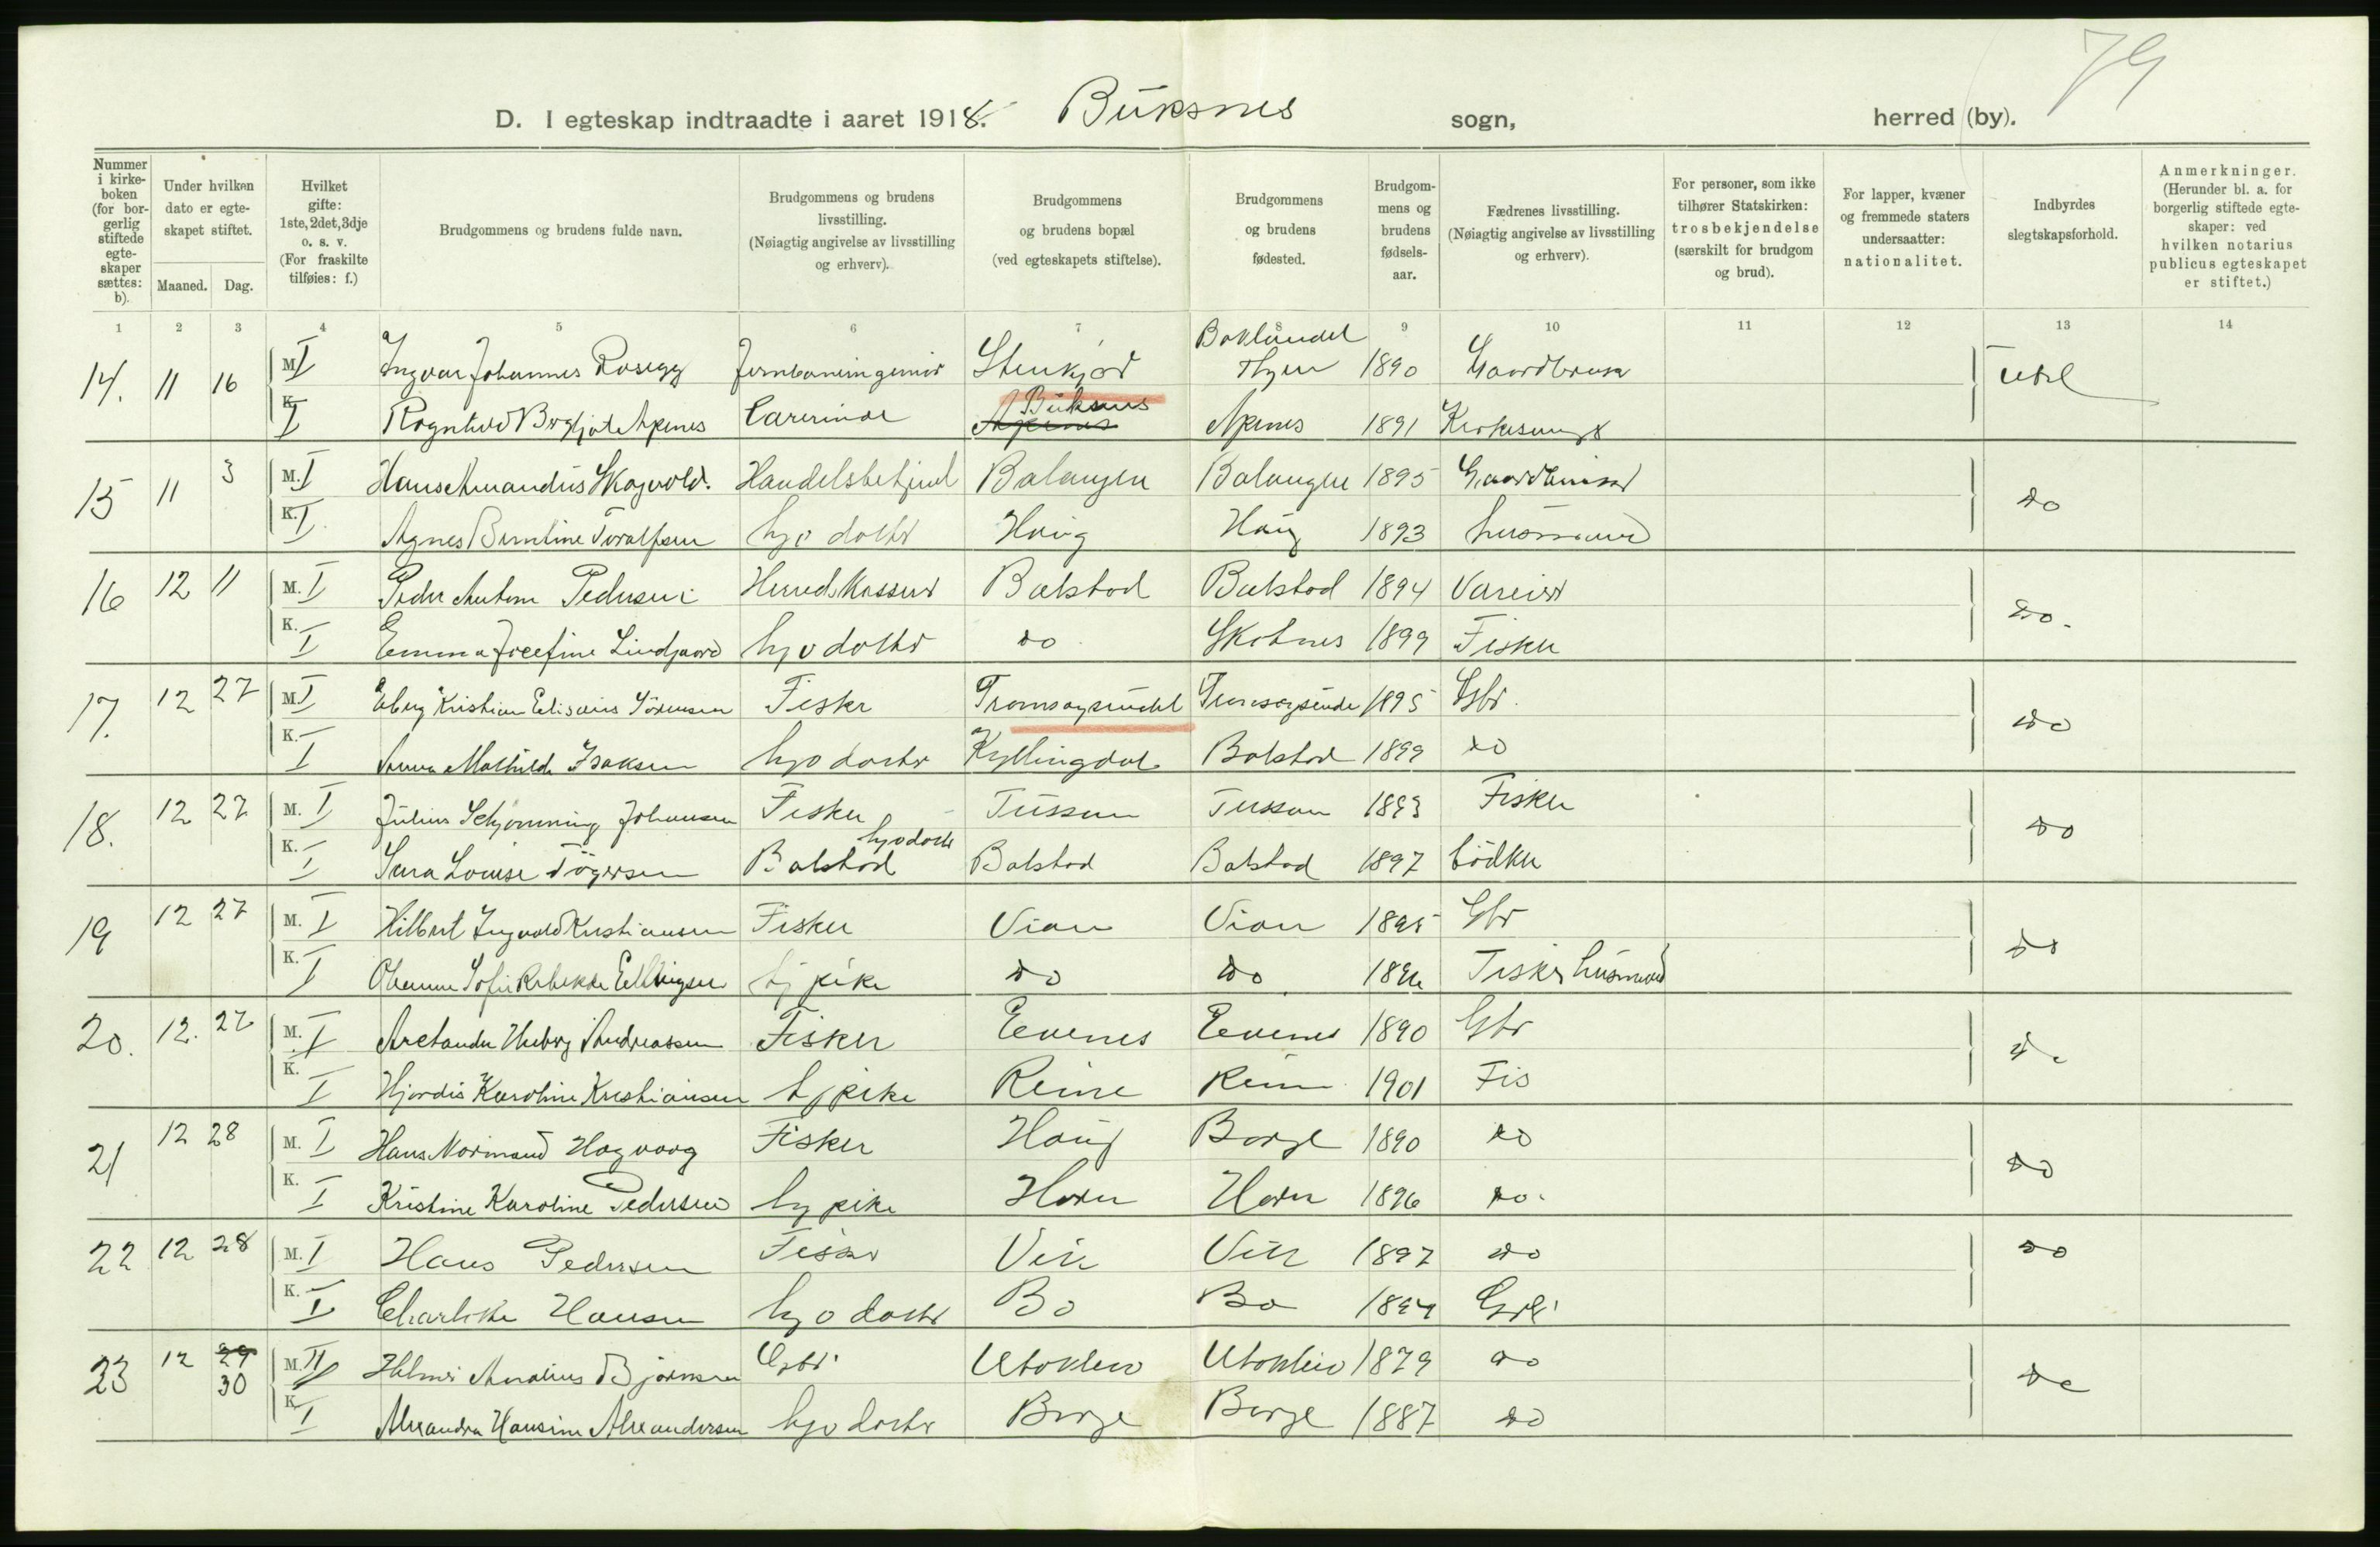 79
D. I egteskap indtraadte i aaret 1918. Buksnes sogn, herred (by).
Nummer i kirkeboken (for borgerlig stiftede egteskaper sættes: b).
Under hvilken dato er egteskapet stiftet.
Maaned. Dag.
Hvilket gifte: 1ste, 2det, 3dje o. s. v. (For fraskilte tilføies: f.)
Brudgommens og brudens fulde navn.
Brudgommens og brudens livsstilling. (Nøiagtig angivelse av livsstilling og erhverv).
Brudgommens og brudens bopæl (ved egteskapets stiftelse).
Brudgommens og brudens fødested.
Brudgommens og brudens fødselsaar.
Fædrenes livsstilling. (Nøiagtig angivelse av livsstilling og erhverv).
For personer, som ikke tilhører Statskirken: trosbekjendelse (særskilt for brudgom og brud).
For lapper, kvæner og fremmede staters undersaatter: nationalitet.
Indbyrdes slegtskapsforhold.
Anmerkninger. (Herunder bl. a. for borgerlig stiftede egteskaper: ved hvilken notarius publicus egteskapet er stiftet.)
1 2 3 4 5 6 7 8 9 10 11 12 13 14
14. 11 16 M. I Ingvar Johannes Rosegg Jernbaneingeniør Stenkjær 1890 Gaardbruker
K. I Ragnhild Bergljot Apenes Lærerinde Buksnes Apenes 1891
15 11 3 M. I Hans Amandus Skogvold. Handelsbetjent Balangen Balangen 1895 Gaardbruker do
K. I Agnes Berntine Toralfsen hjv datter Haug Haug 1893 husmand
16 12 11 M. I Peder Antone Pedersen Herredskasserer Balstad Balstad 1894 do.
K. I Emma Josefine Lindgaard hjv datter do Skotnes 1899 Fisker
17. 12 27 M. I Kristian Edisæus Sørensen Fisker Tromsøysundet Tromsøysundet 1895 Gbr. do
K. I Anna Mathilde Isaksen hjv datter Kyllingdal Balstad 1899 do
18. 12 27 M. I Julius Schjønning Johansen Fisker 1893 Fisker do
K. I Louise Tøgersen Balstad hjv datter Balstad Balstad 1897 bødker
19 12 27 M. I Hilbert Ingvald Kristiansen Fisker Vian Vian 1895 Gbr do
K. I Sofie Rebekka Ellingsen hj pike do do Fisker husmand
20. 12. 27 M. I Andreassen Fisker Evenes Evenes 1890 Gbr do
K. I Hjørdis Karoline Kristiansen hj pike Reine Reine 1901 Fis
21 12 28 M. I Hans Normand Hagvaag Fisker Haug Borge 1890 do do
K. I Kristine Karoline Pedersen hj pike Horn Horn 1896 do.
22 12 28 M. I Hans Pedersen Fisker Vik Vik 1897 do do
K. I Hansen hjv datter Bø Bø Gbr
23 12 29 30 M. II Hilmar Bjørnsen Gbr Utakleiv Utakleiv 1879 do do
K. I Alexandra Hansine Alexandersen hjv datter Borge Borge 1887 do